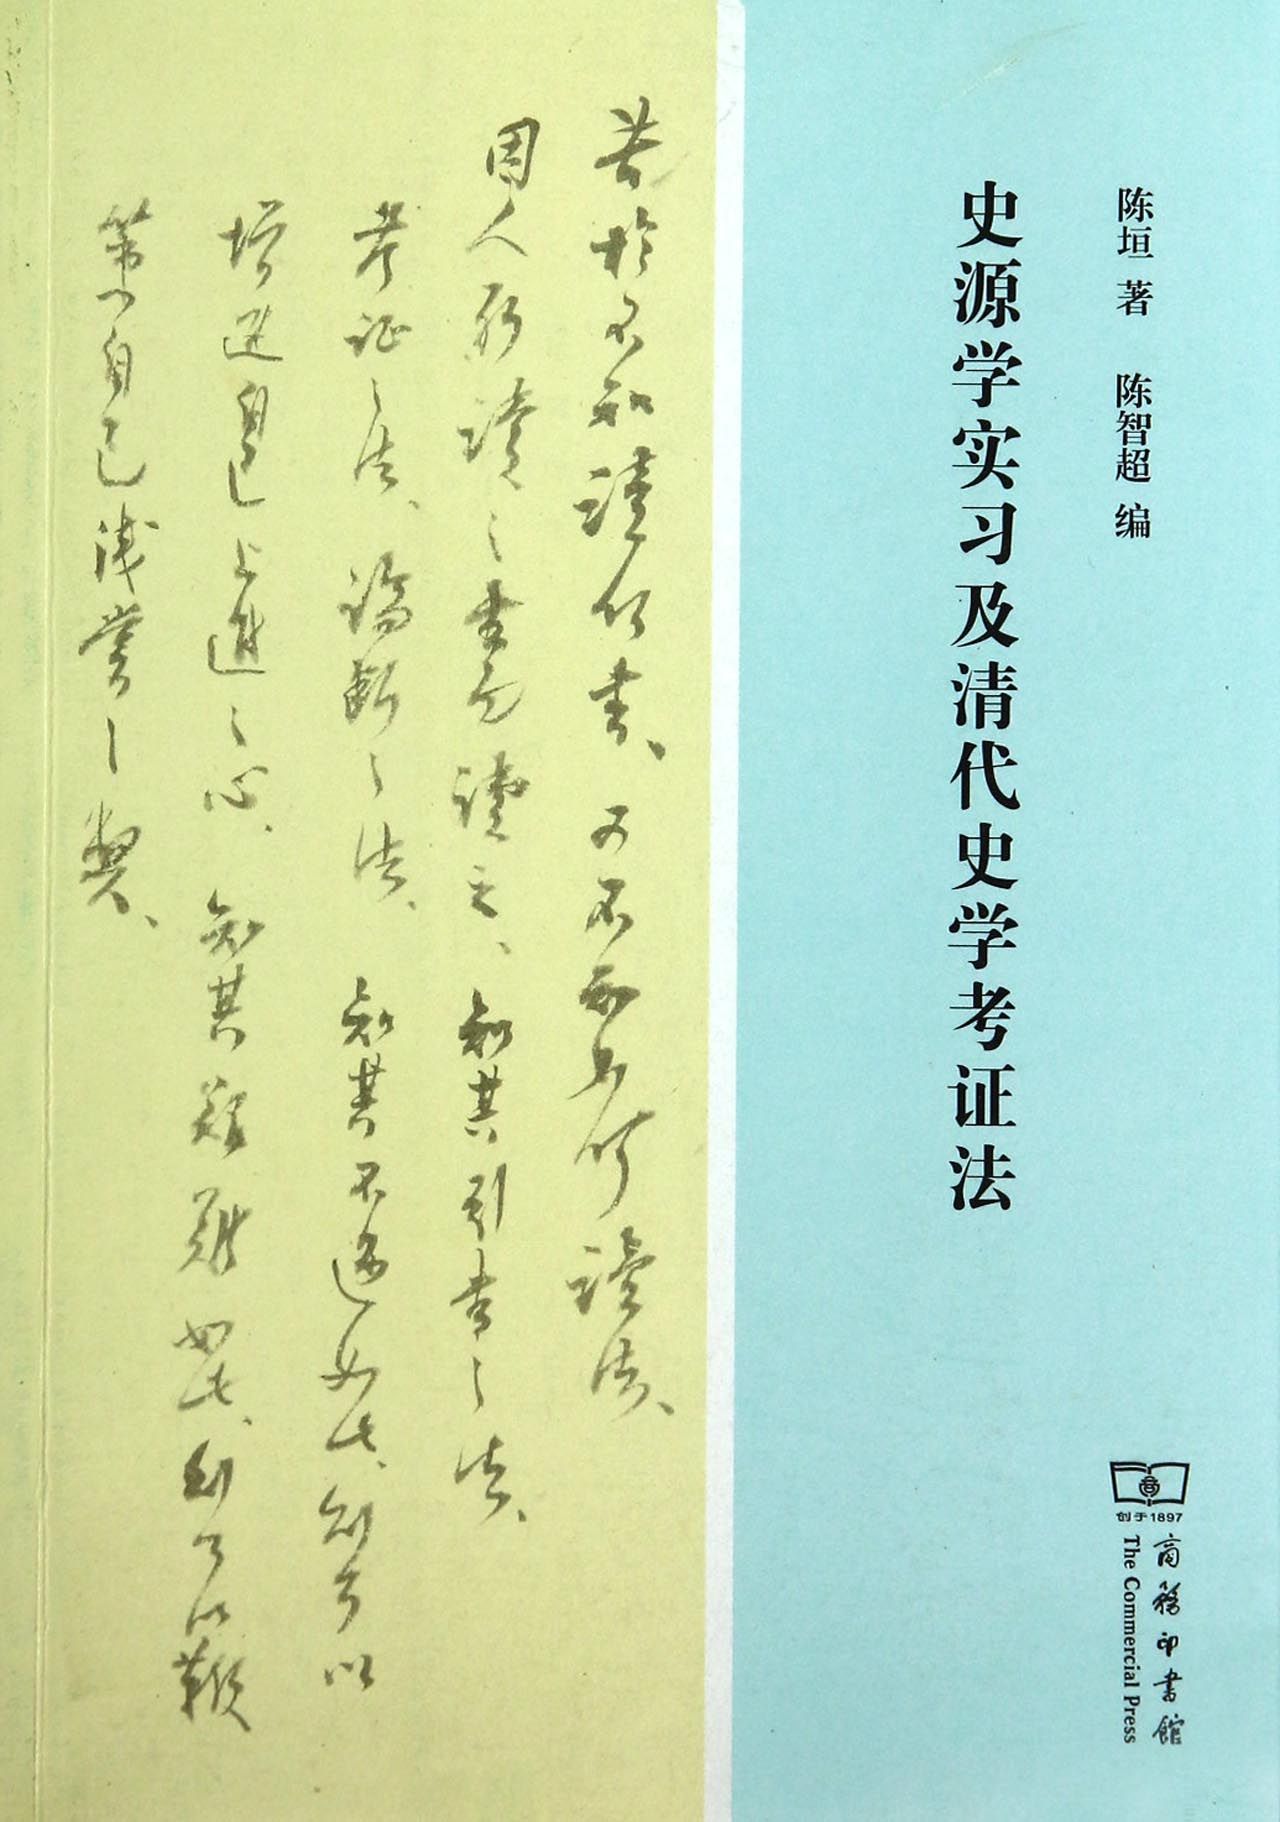 陈垣 著 陈智超 编
史源学实习及清代史学考证法
创于1897
商務印書館
The Commercial Press
苦於不知讀何書、又不知如何讀法、
因人所讀之書而讀之、知其引書之法、
考証之法、論斷之法、知其不過如此、則可以
增進自己上進之心、知其艱難如此、則可以鞭
策自己浅嘗之弊、